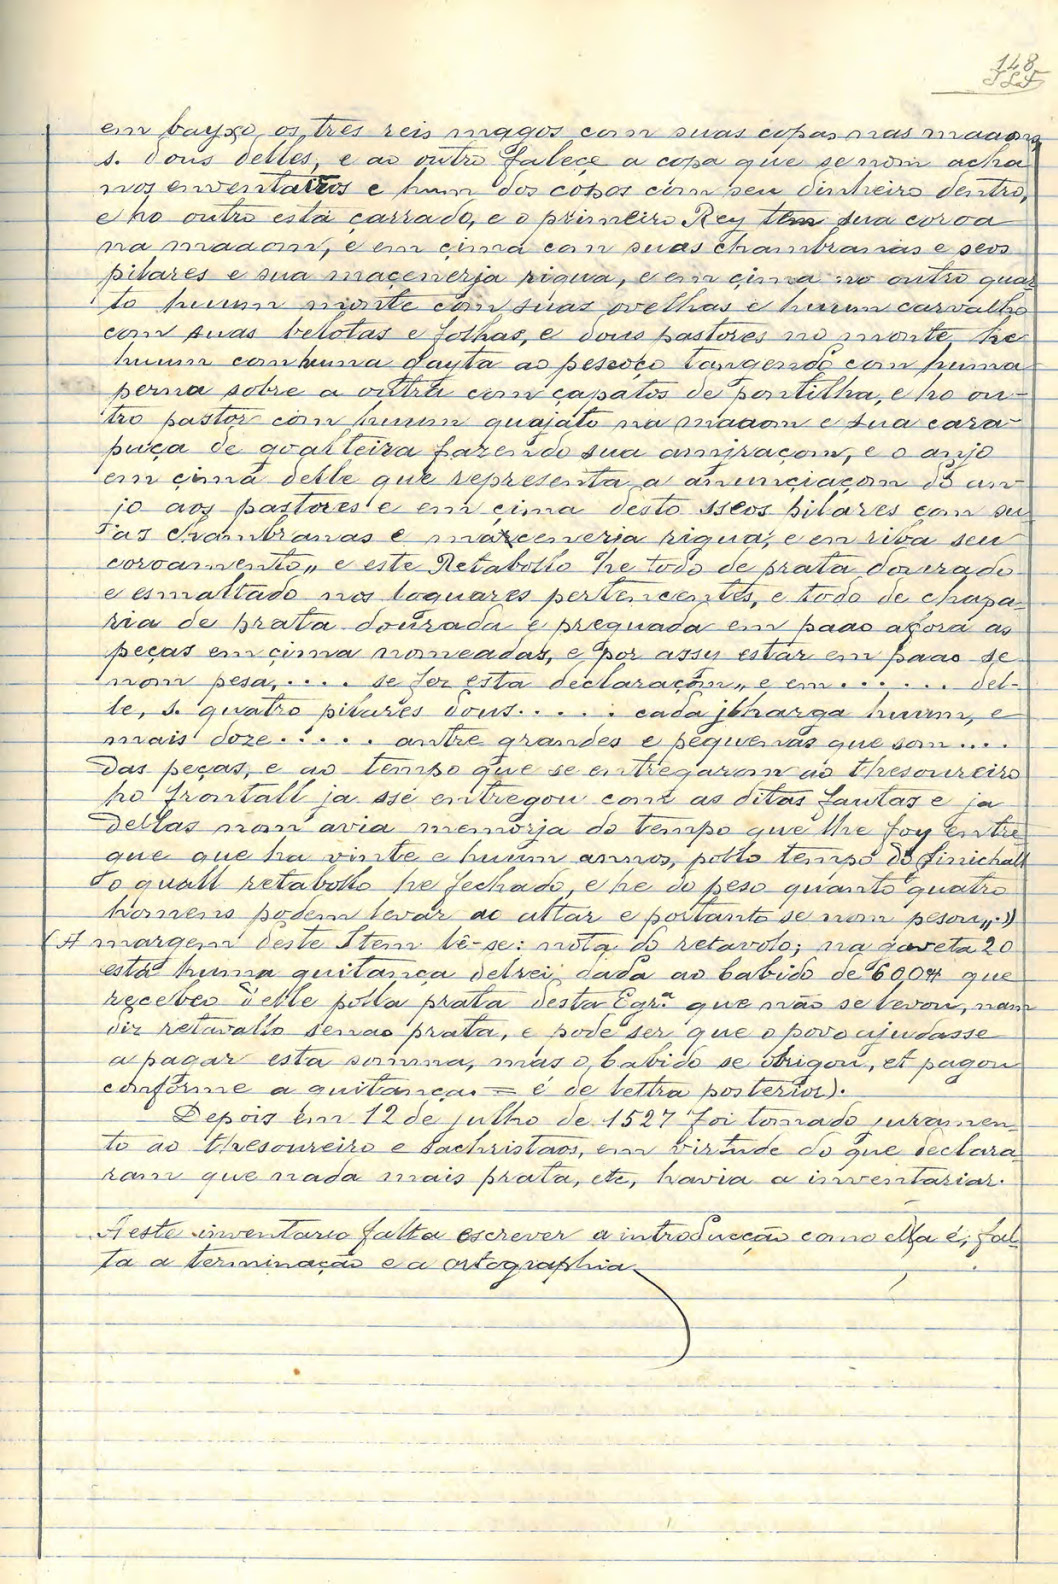 148
em bayxo, os tres reis magos com suas copas nas maaoms
s. dous delles, e ao outro faleçe a copa que se nom acha
nos enventairos e hum dos copos com seu dinheiro dentro,
e ho outro está çarrado, e o primeiro Rey tem sua coroa
na maaom, e em çima com suas chambranas e seos
pilares e sua maçenerja rigua, e em çima no outro quar
to huum monte com suas ovelhas e huum carvalho
com suas belotas e folhas, e dous pastores no monte, he
huum com huma gayta ao pescoço tangendo com huma
perna sobre a outra com çapatos de pontilha, e ho ou-
tro pastor com huum quajato na maaom e sua cara-
puça de goalteira fazendo sua amjraçom, e o anjo
em çima delle que representa a anunçiaçom do an-
jo aos pastores e em çima desto sseos pilares com su
as chambranas e marceneria rigua, e em riba seu
coroamento,, e este Retabollo he todo de prata dourado
e esmaltado nos loguares pertencentes, e todo de chapa-
ria de prata dourada e preguada em paao agora as
peças em çima nomeadas, e por assy estar em paao se
nom pesa, .... se fez esta declaraçom,, e em ...... del-
le, s. quatro pilares dous ..... cada jlharga huum, e
mais doze ..... antre grandes e pequenas que som ....
das peças, e ao tempo que se entregarom ao thesoureiro
ho frontall ja sse entregou com as ditas fautas e ja
dellas nom avia memorja do tempo que lhe foy entre
gue que ha vinte e huum annos, pollo tempo do sinichall
o quall retabollo he fechado, e he do peso quanto quatro
homens podem levar ao altar e portanto se nom pesou,,.»
(A margem deste Item lê-se: nota do retavolo; na gaveta 20
está huma quitança delrei dada ao Cabido de 600# que
recebeo delle polla prata desta Egr.ª que não se levou, nam
diz retavallo senao prata, e pode ser que o povo ajudasse
a pagar esta somma, mas o Cabido se obrigou, et pagou
conforme a quitança. = é de lettra posterior).
Depois em 12 de julho de 1527 foi tomado juramen-
to ao thesoureiro e sachristaos, em virtude do que declara-
ram que nada mais prata, etc, havia a inventariar.
A este inventario falta escrever a introducção como ella é, fal-
ta a terminação e a ortographia